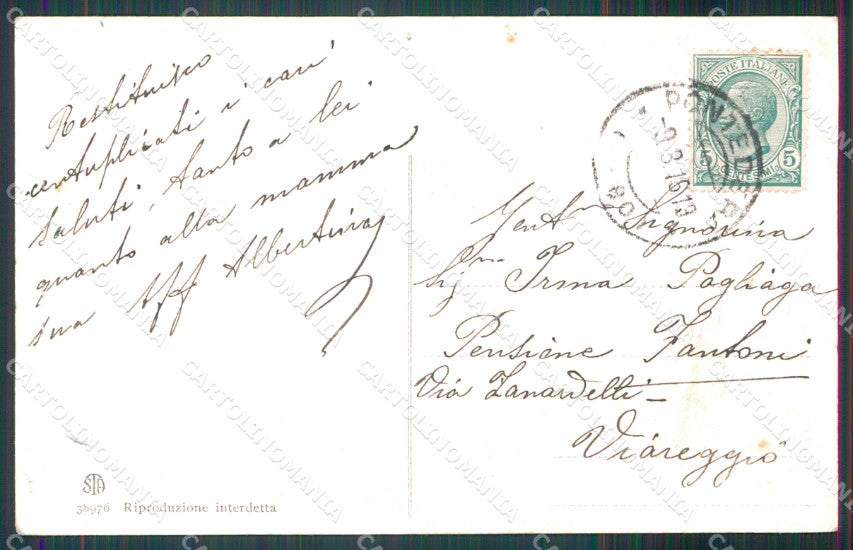 Restituisco
centuplicati i cari
saluti, tanto a lei
quanto alla mamma
sua Aff Albertina
STA
38976 Riproduzione interdetta
POSTE ITALIANE
5 5
CENTESIMI
9.8.16 13
Gent Signorina
Sig.na Irma Pagliaga
Pensione Fantoni
Via Zanardelli
Viareggio
CARTOLINOMANIA